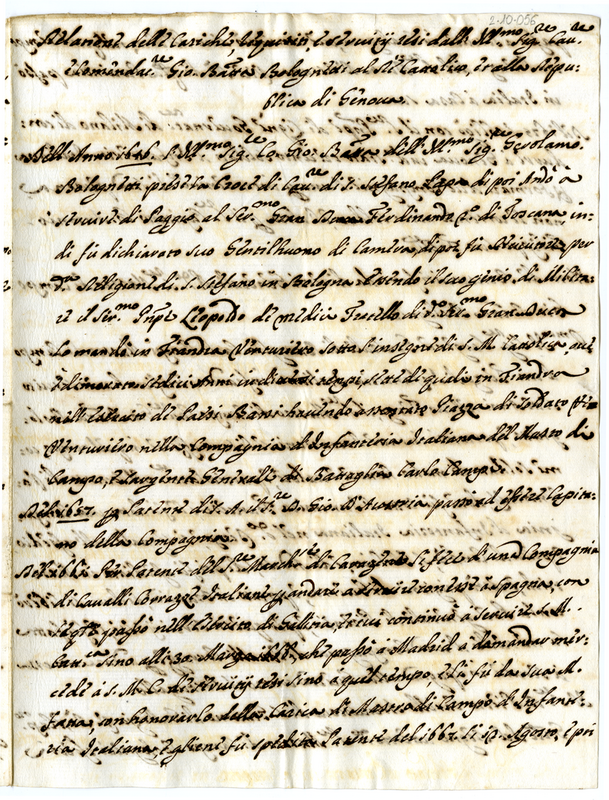 2-10-056
Relatione delle Cariche, requisiti, e servitij resi dall' Ill.mo Sig.re Cau.re
e Comendat.re Gio. Batta Bolognetti al Rè Cattolico, e alla Repu-
blica di Genova
Dell'Anno 1646. l'Ill.mo Sig.re Co. Gio: Batta dell'Ill.mo Sig.re Gerolamo
Bolognetti prese la Croce di Cau.re di S. Stefano Papa, di poi Andò à
servire di Paggio al Ser.mo Gran Duca Ferdinando 2.o di Toscana, in-
di fù dichiarato suo Gentilhuomo di Camera, di poi fù Ricevitore per
Religione di S. Stefano in Bologna, essendo il suo genio di Milita-
re il Ser.mo Prnpe Leopoldo de Medici Fratello di d.o Ser.mo Gran Duca
lo mandò in Fiandra Venturiero sotto l'insegne di S. M. Cattolica, oue
dimorato sedici Anni in diuersi tempi, de quali in Fiandra
nell'esercito de Paesi Bassi hauendo assentato Piazza di Soldato
Venturiero nella Compagnia d'Infanteria Italiana del Mastro di
Campo, e Sargente Generale di Battaglia Carlo Campi
Del 1657. Patente di S. A. il S.re D. Gio. d'Austria passò ad esser Capita-
no della Compagnia
Del 166 Per Patente del S.re March.e di Caracena si fece d'una Compagnia
di Cavalli Corazze Italiane andare a servire con essi à Spagna, con
passò nell'esercito di Galitia, e continuò à seruire S. M.
Catt.ca sino alli 30 Marzo che passò à Madrid à domandar mer-
cede à S. M. C. de seruitij resi sino a quel tempo, e là fù da sua M.
fatta, con honorarlo della Carica di Mastro di Campo d'Infante-
ria Italiana, e gliene fù spedita Patente del 1667 li 12 Agosto, e pri